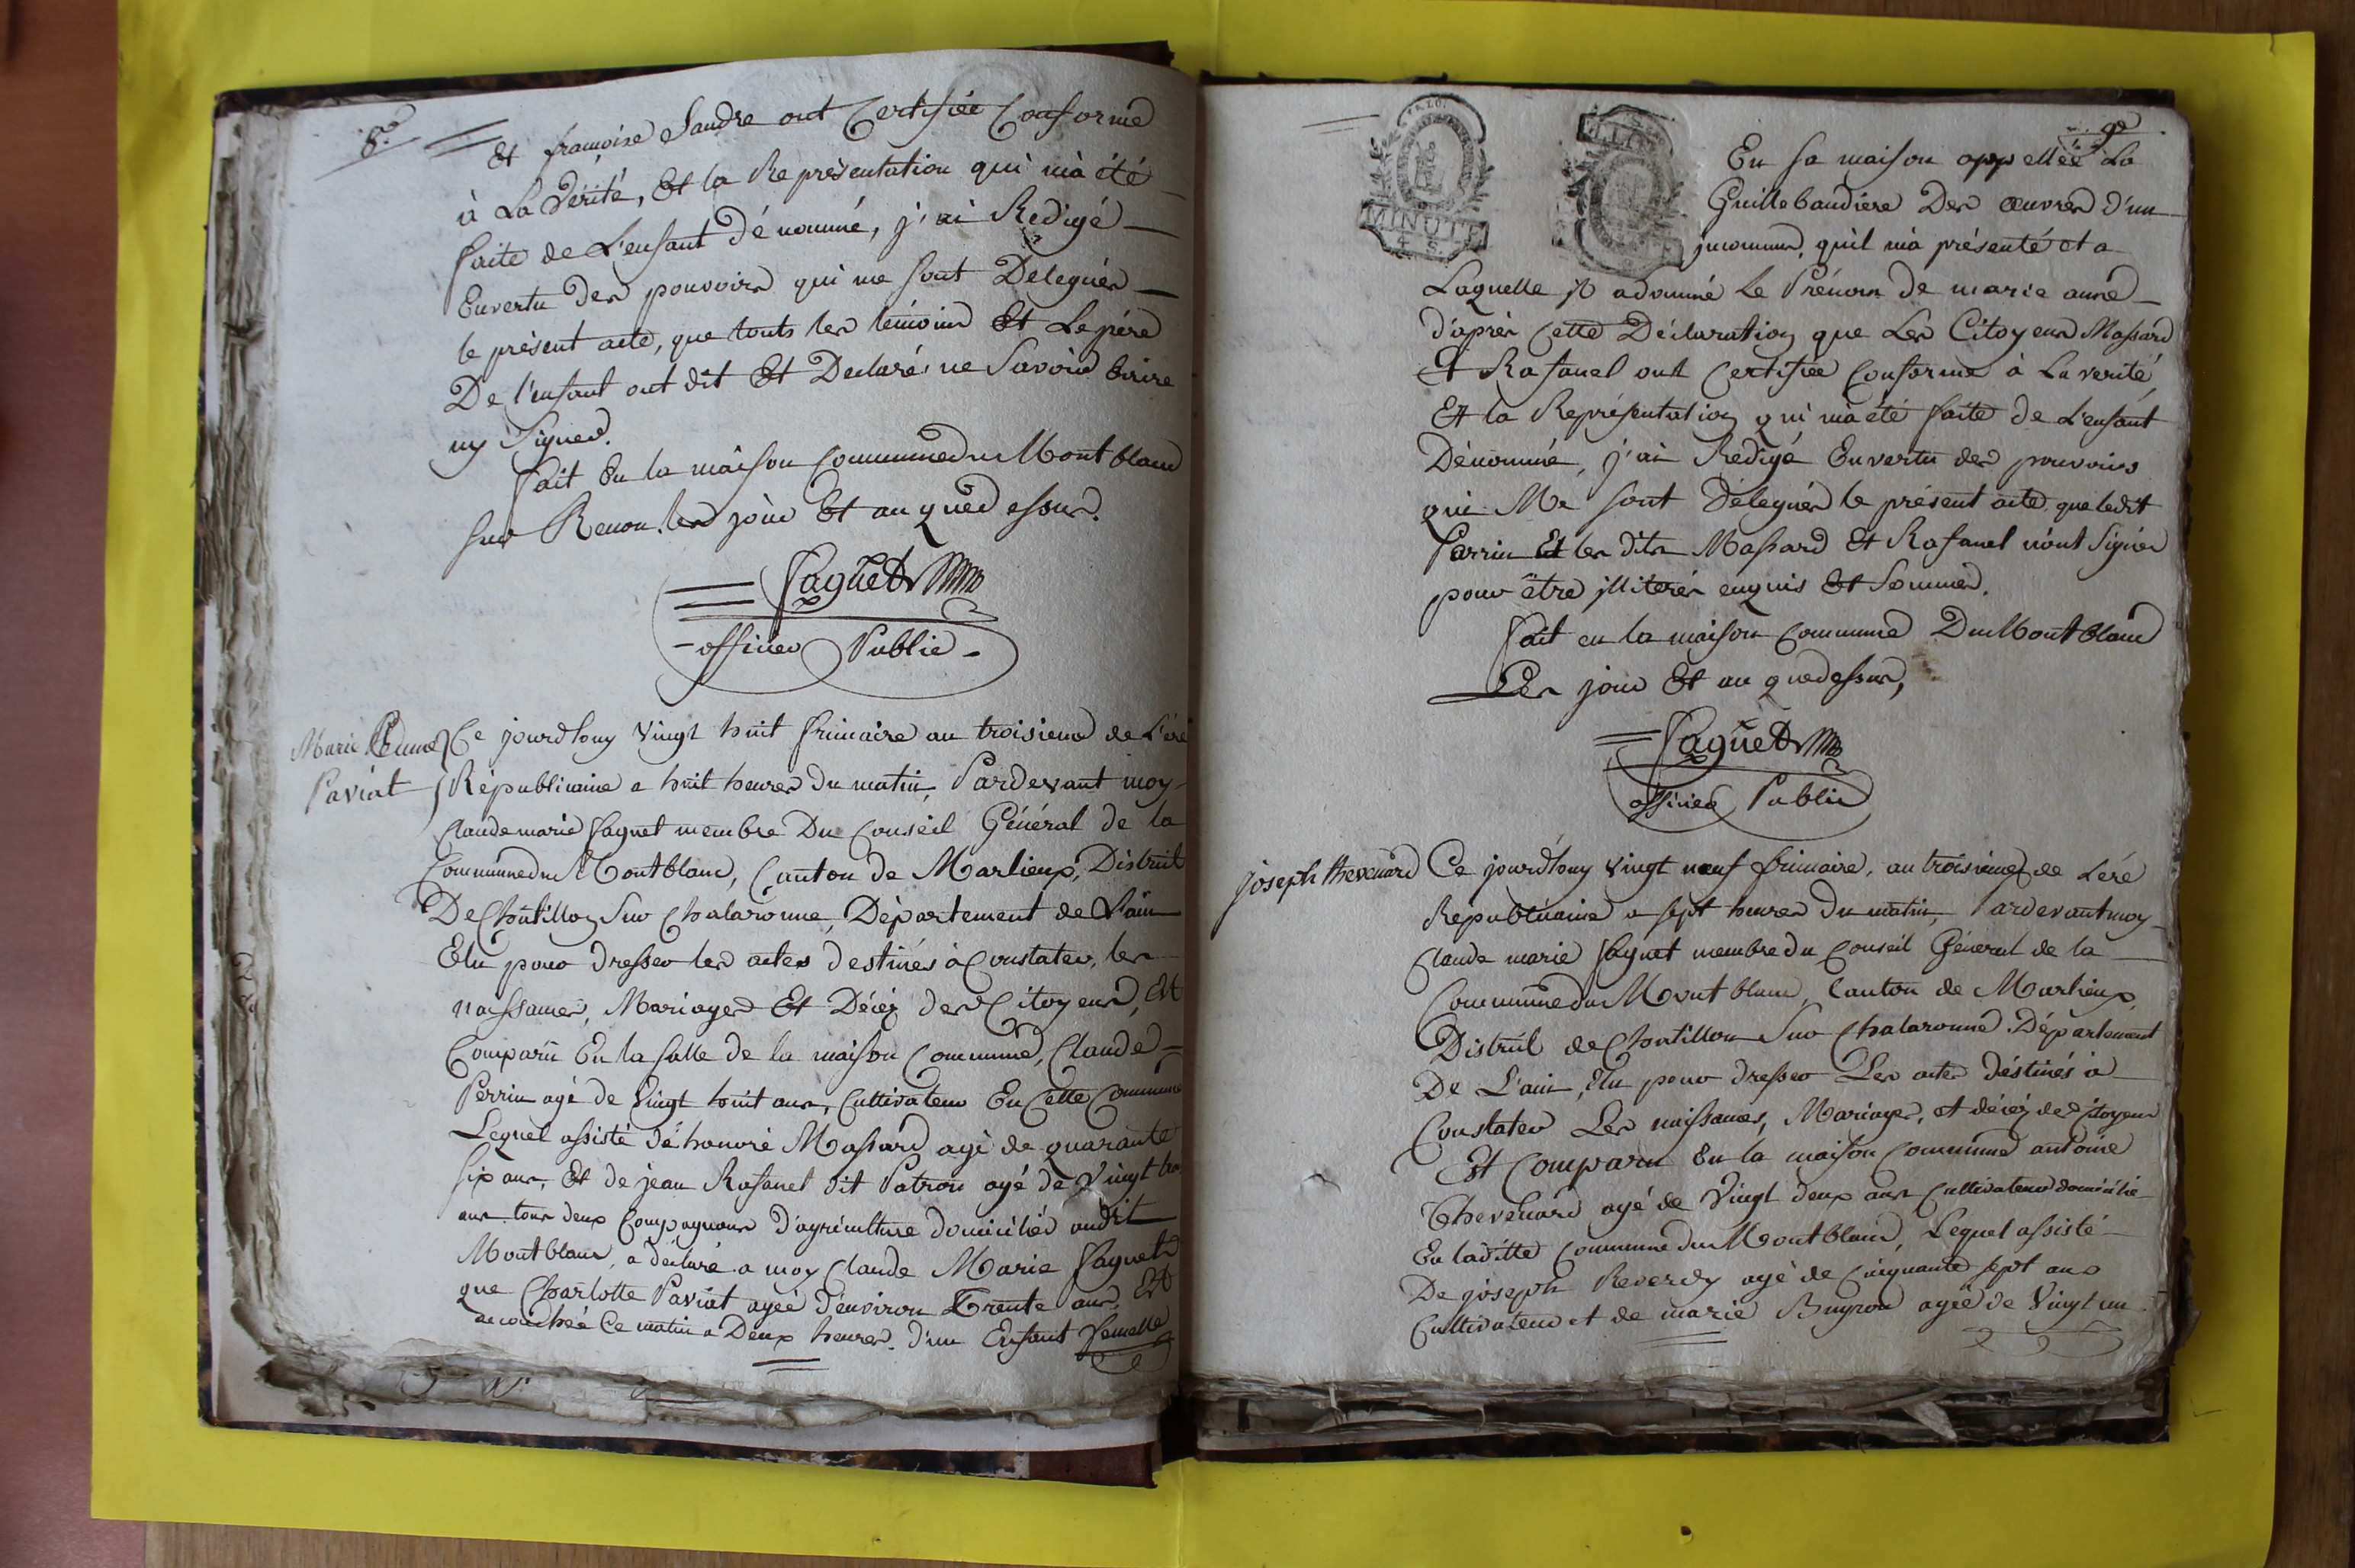 8e
Et francoise Sandre ont Certifiée Conforme
à La Vérité, Et la Représentation qui m'a été
faite de L'enfant dénommé, j'ai Redigé
En vertu des pouvoirs qui me sont Delegués
le présent acte, que touts les témoins Et Le père
De l'enfant ont dit Et Declaré ne Savoir Ecrire
ny Signer.
fait En la maison Commune du Montblanc
sur Renon. les jour Et an que dessus.
faguet
officier Public
Marie
Paviot
Ce jourdhuy Vingt huit frimaire an troisieme de L'ére
Républicaine a huit heures du matin, Pardevant moy
Claude marie faguet membre Du Conseil Général de la
Commune du Montblanc, Canton de Marlieux, District
De Chatillon Sur Chalaronne, Département de L'ain
Elu pour dresser les actes destinés à Constater, les
naissances, Mariages Et Décéz des Citoyens, Et
Comparu En la salle de la maison Commune, Claude
Perrin agé de Vingt huit ans, Cultivateur En Cette Commune
Lequel assisté de honoré Massard agé de quarante
six ans, Et de jean Rafanel dit Patron agé de Vingt
ans tous deux Compagnons d'agriculture domiciliés audit
Montblanc, a déclaré a moy Claude Marie faguet
que Charlotte Paviot ageé d'environ Trente ans, Et
accouchée Ce matin a Deux heures. d'un Enfant femelle
9e
MINUTE
4. S.
En sa maison appellée La
Guillebaudiere Des œuvres d'un
jnconnu, quil m'a présenté et a
Laquelle jl adonné Le Prénom de marie anne
d'après Cette Déclaration que Les Citoyens Massard
Et Rafanel ont Certifiée Conforme à La verité,
Et la Représentation qui m'a été faite de L'enfant
Dénommé, j'ai Redigé En vertu des pouvoirs
qui Me sont Délegués le présent acte que ledit
Perrin Et les dits Massard Et Rafanel n'ont Signés
pour être jlliterés enquis Et Sommés.
fait en la maison Commune Du Montblanc
Les jour Et an que dessus,
faguet
officier Public
joseph thevenard
Ce jourdhuy Vingt neuf frimaire, an troisieme de L'éré
Republicaine a sept heures du matin, Pardevant moy
Claude marie faguet membre du Conseil Géneral de la
Commune du Montblanc, Canton de Marlieux,
District de Chatillon Sur Chalaronne Département
De L'ain, Elu pour dresser Les actes déstinés à
Constater Les naissances, Mariages, et décéz des Citoyens
Et Comparu En la maison Commune antoine
Thevenard agé de Vingt deux ans Cultivateur domicilié
En laditte Commune du Montblanc, Lequel assisté
De joseph Reverdy agé de Cinquante sept ans
Cultivateur et de marie Buyron agée de Vingt un